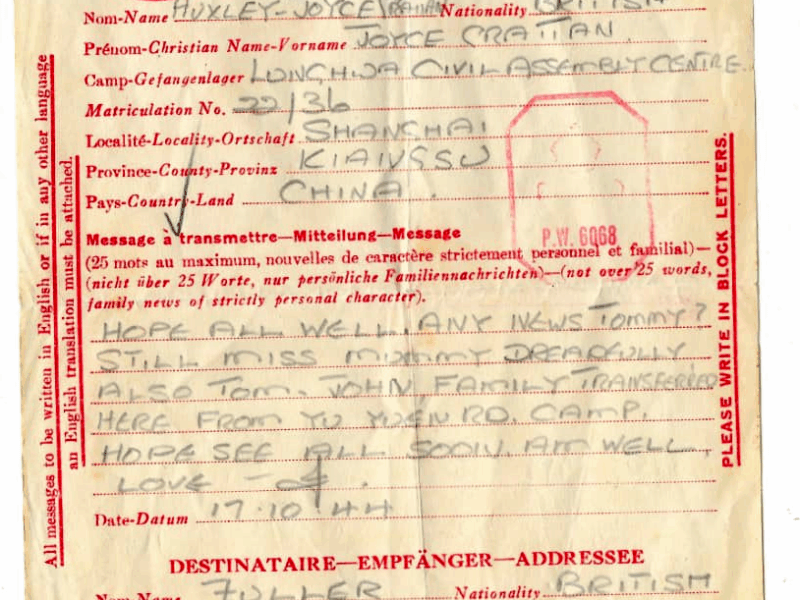 Nom-Name HUXLEY-JOYCE Nationality BRITISH
Prénom-Christian Name-Vorname JOYCE GRATIAN
Camp-Gefangenlager LUNGHWA CIVIL ASSEMBLY CENTRE.
Matriculation No. 22/36
Localité-Locality-Ortschaft SHANGHAI
Province-County-Provinz KIANGSU
Pays-Country-Land CHINA.
P.W. 6068
Message à transmettre—Mitteilung—Message
(25 mots au maximum, nouvelles de caractère strictement personnel et familial)—
(nicht über 25 Worte, nur persönliche Familiennachrichten)—(not over 25 words,
family news of strictly personal character).
HOPE ALL WELL. ANY NEWS TOMMY?
STILL MISS MUMMY DREADFULLY
ALSO TOM. JOHN, FAMILY TRANSFERRED
HERE FROM YU YUEN RD. CAMP.
HOPE SEE ALL SOON. AM WELL,
LOVE — J.
Date-Datum 17.10.44
DESTINATAIRE—EMPFÄNGER—ADDRESSEE
Nom-Name FULLER Nationality BRITISH
All messages to be written in English or if in any other language
an English translation must be attached.
PLEASE WRITE IN BLOCK LETTERS.